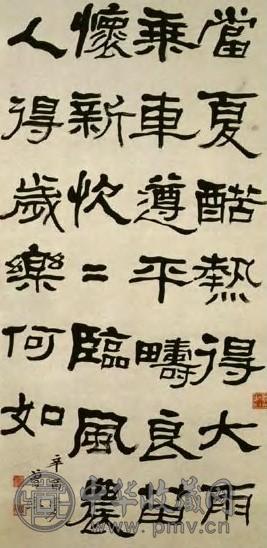 當夏酷熱得大雨
乘車遵平疇良苗
懷新快=臨風農
人得歲樂何如
辛
中华收藏网
www.pmv.cn